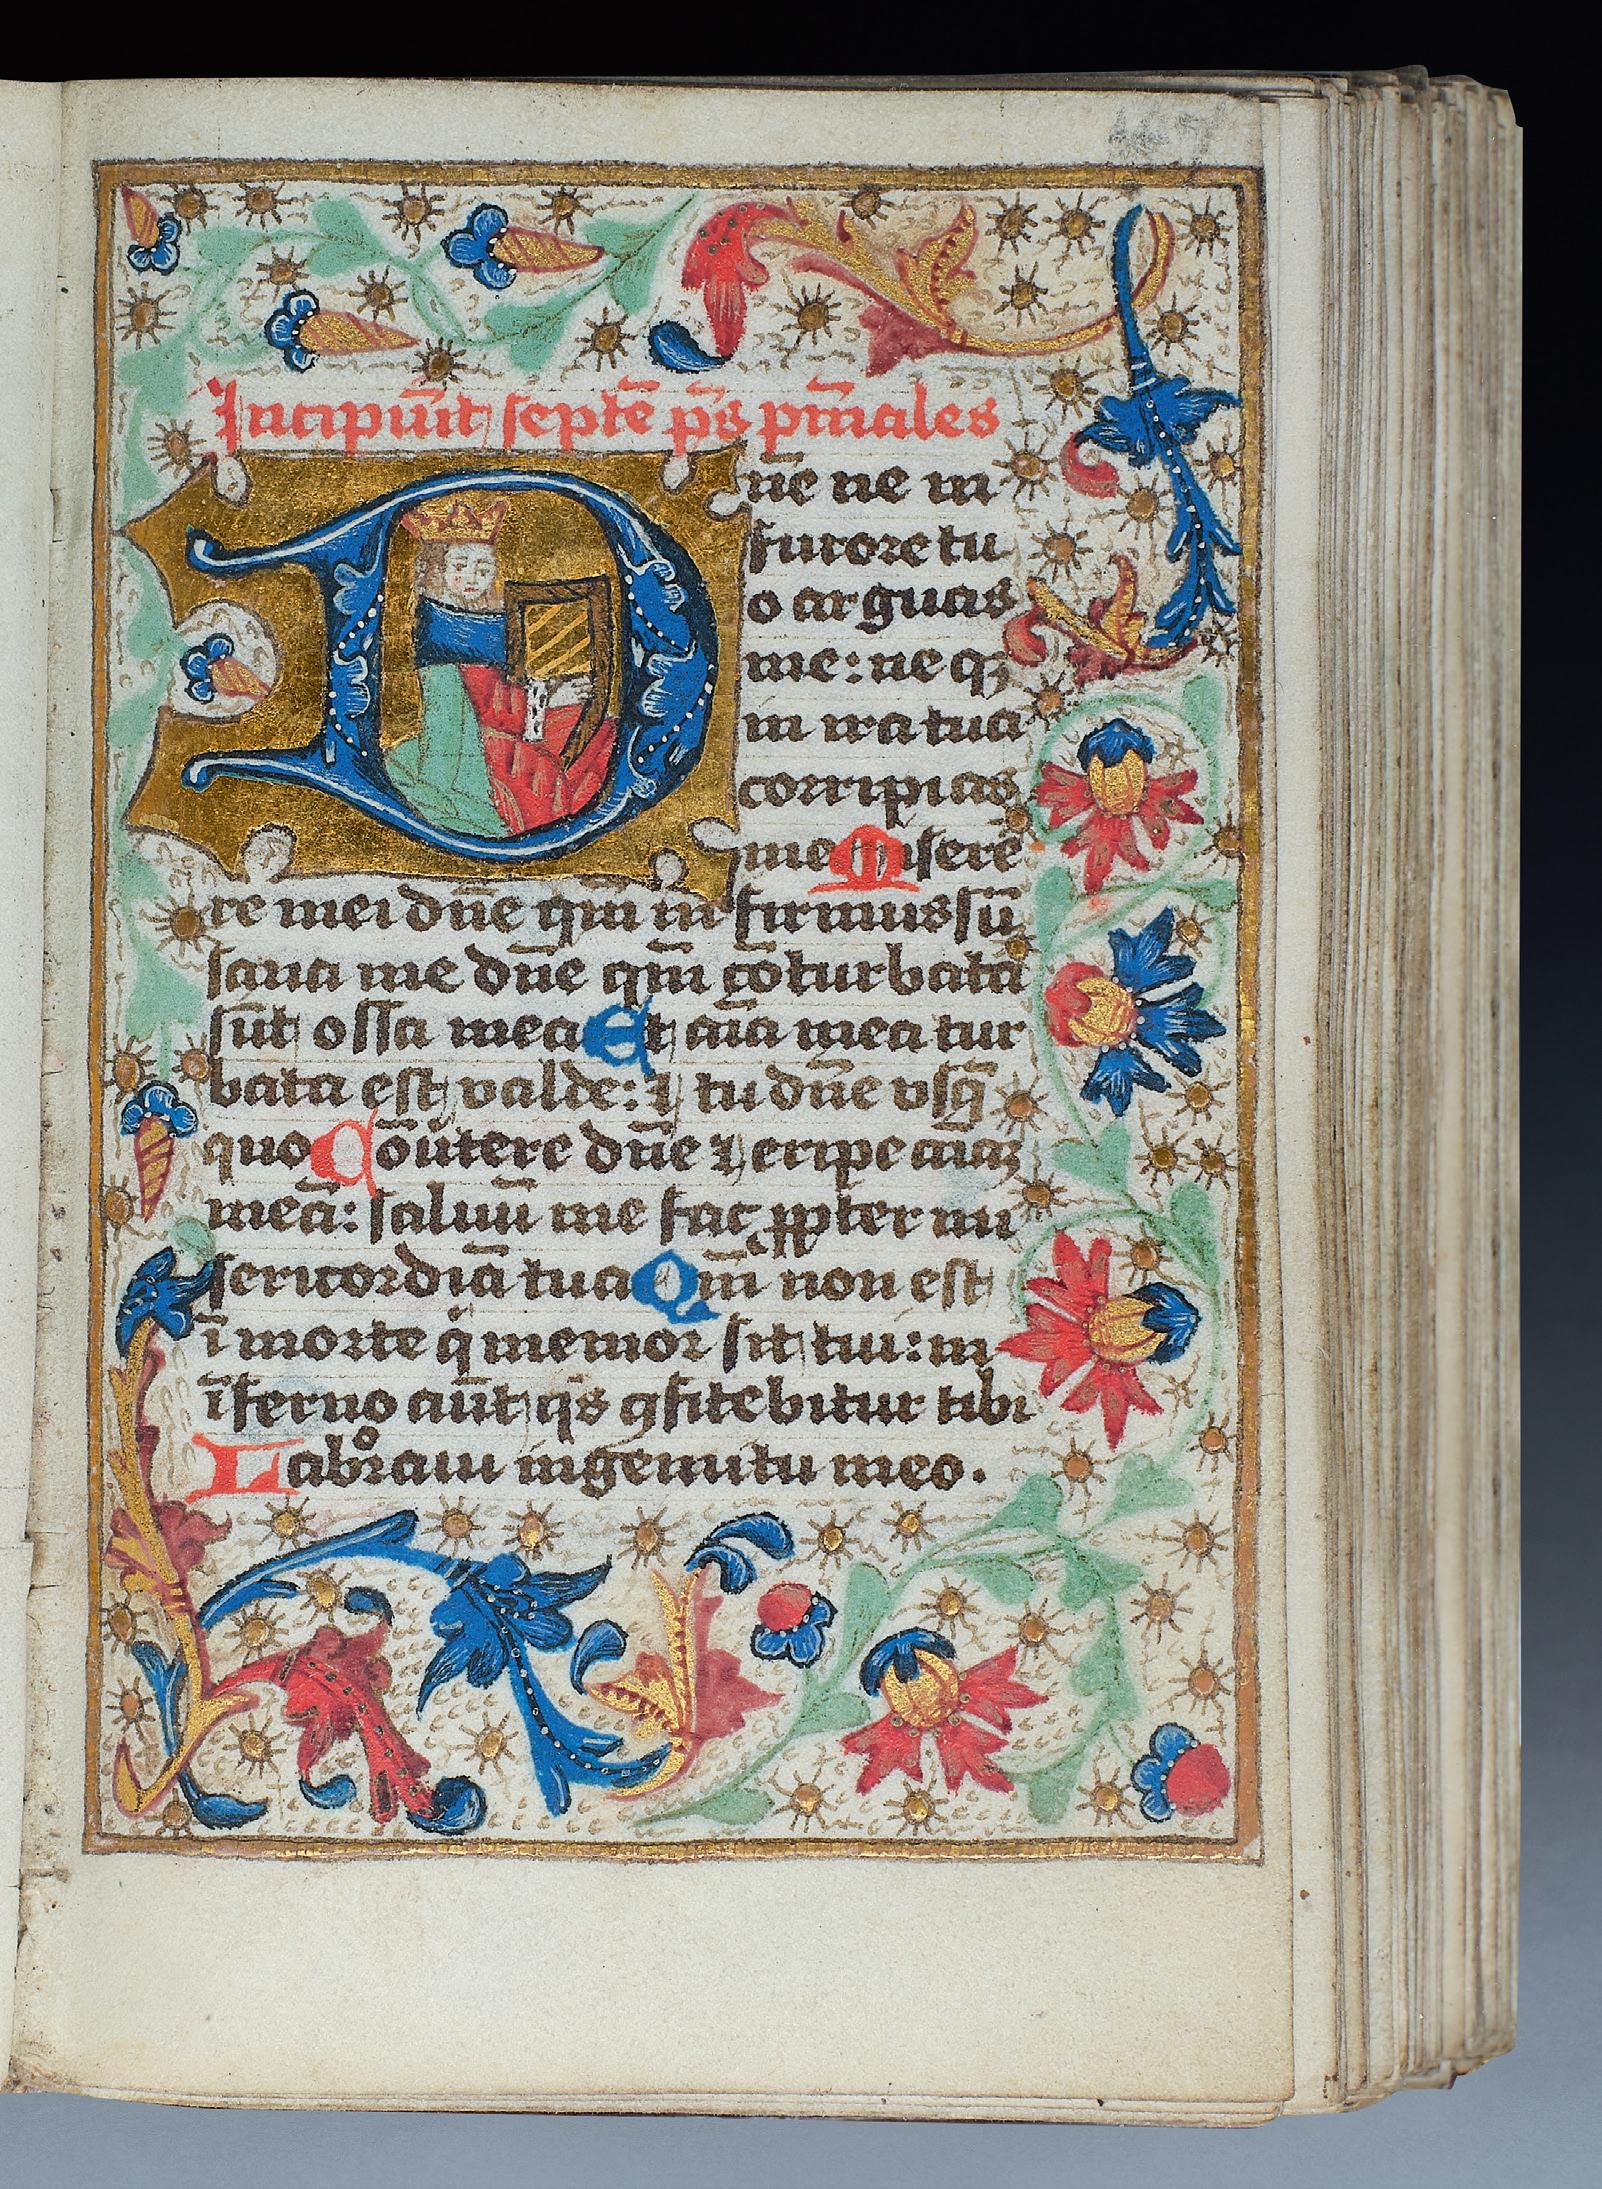 Incipiu̅t septe̅ p̅s̅ p̅n̅iales
Dn̅e ne in
furore tu
o arguas
me: ne qꝫ
in ira tua
corripias
me Misere
re mei dn̅e qm̅ infirmus su̅
sana me dn̅e qm̅ co̅turbata
su̅t ossa mea Et ai̅a mea tur
bata est valde: ⁊ tu dn̅e usq̅
quo Co̅u̅tere dn̅e ⁊ eripe ai̅aꝫ
mea̅: saluu̅ me fac ꝓpter mi
sericordia̅ tua Qm̅ non est
i̅ morte qͥ memor sit tui: in
i̅ferno au̅t qͥs ꝯfitebitur tibi
Labºraui in gemitu meo.